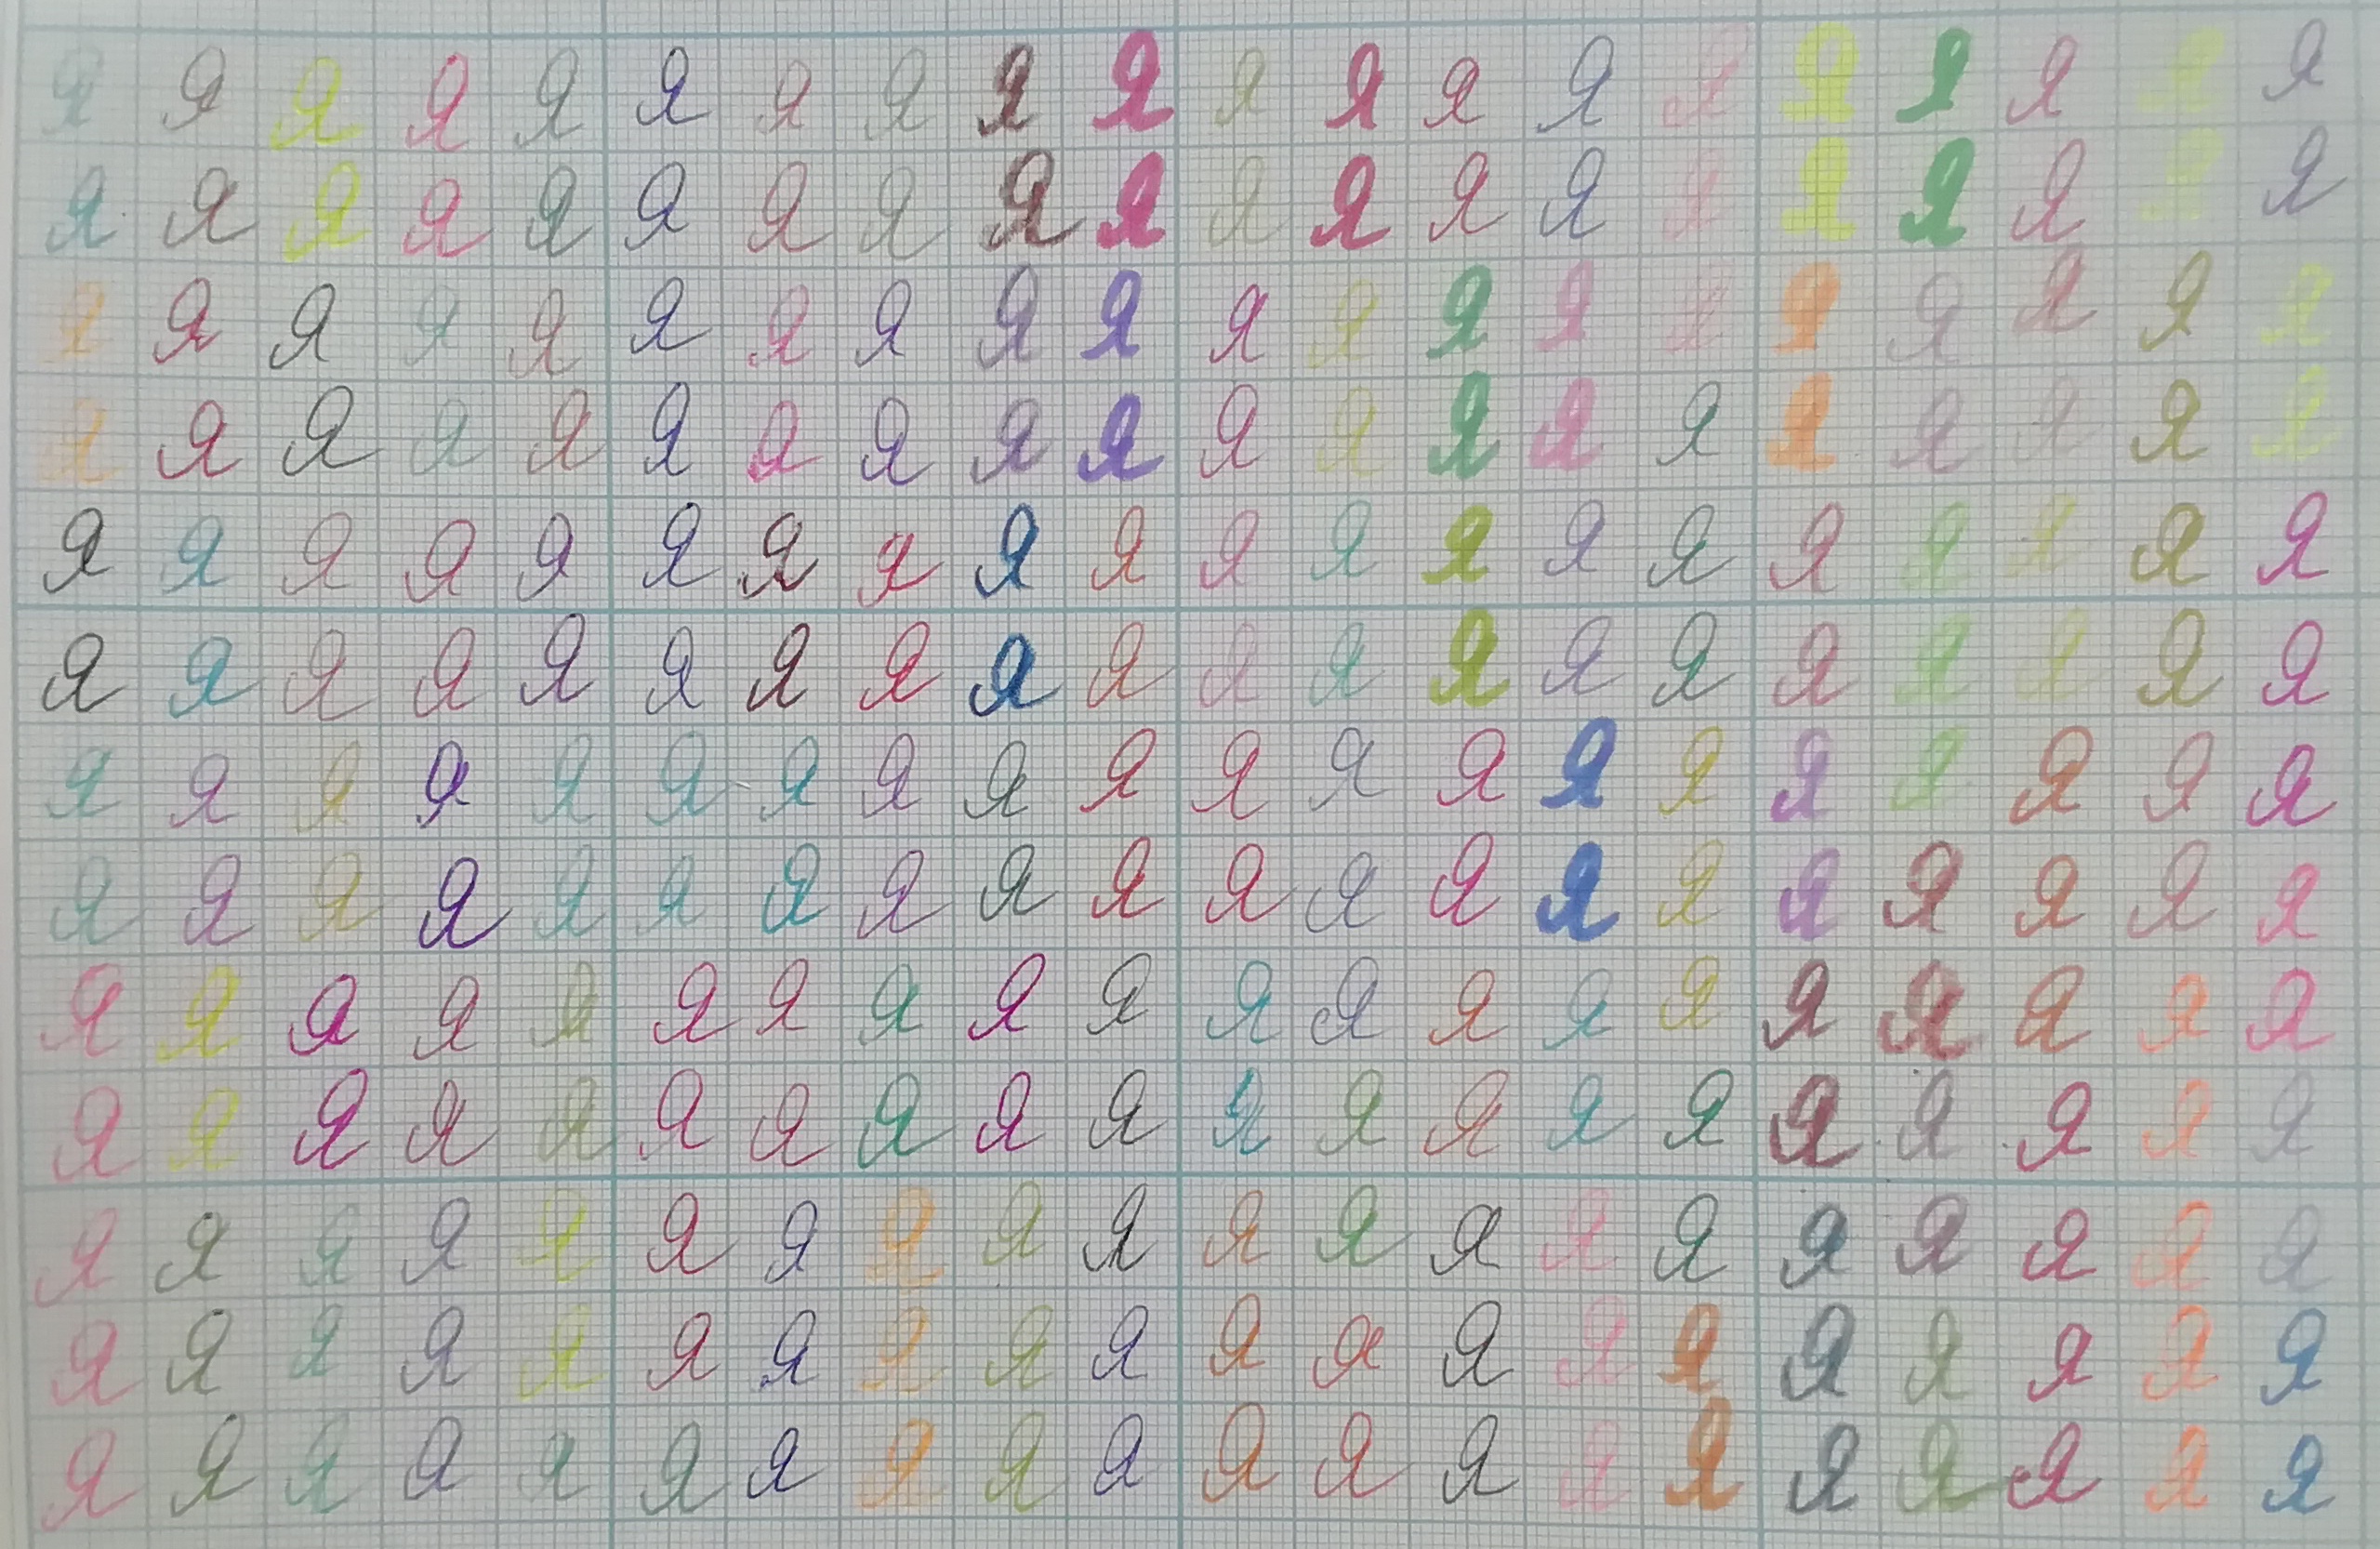 Я Я Я Я Я Я Я Я Я Я Я Я Я Я Я Я Я Я Я Я
Я Я Я Я Я Я Я Я Я Я Я Я Я Я Я Я Я Я Я Я
Я Я Я Я Я Я Я Я Я Я Я Я Я Я Я Я Я Я Я Я
Я Я Я Я Я Я Я Я Я Я Я Я Я Я Я Я Я Я Я Я
Я Я Я Я Я Я Я Я Я Я Я Я Я Я Я Я Я Я Я Я
Я Я Я Я Я Я Я Я Я Я Я Я Я Я Я Я Я Я Я Я
Я Я Я Я Я Я Я Я Я Я Я Я Я Я Я Я Я Я Я Я
Я Я Я Я Я Я Я Я Я Я Я Я Я Я Я Я Я Я Я Я
Я Я Я Я Я Я Я Я Я Я Я Я Я Я Я Я Я Я Я Я
Я Я Я Я Я Я Я Я Я Я Я Я Я Я Я Я Я Я Я Я
Я Я Я Я Я Я Я Я Я Я Я Я Я Я Я Я Я Я Я Я
Я Я Я Я Я Я Я Я Я Я Я Я Я Я Я Я Я Я Я Я
Я Я Я Я Я Я Я Я Я Я Я Я Я Я Я Я Я Я Я Я